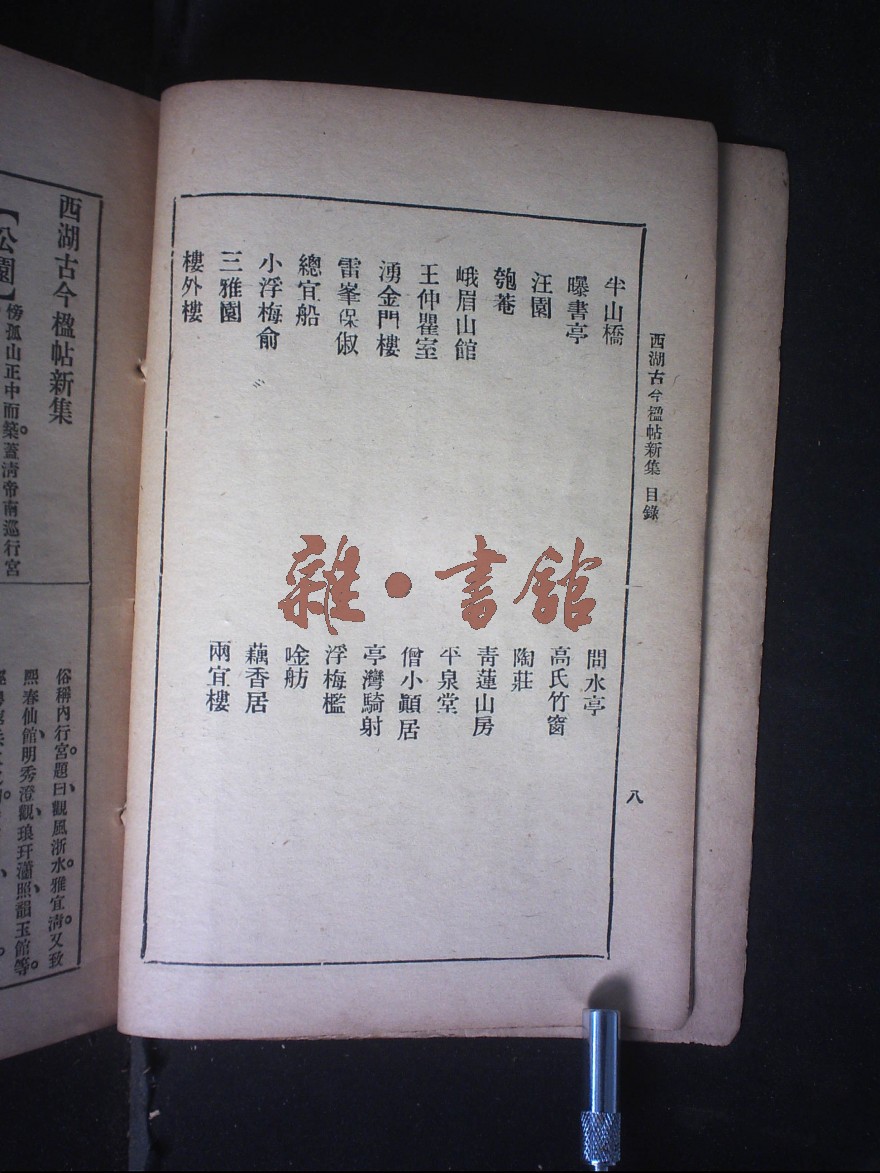 西湖古今楹帖新集 目錄
八
半山橋
曝書亭
汪園
匏菴
峨眉山館
王仲瞿室
湧金門樓
雷峯保俶
總宜船
小浮梅俞
三雅園
樓外樓
問水亭
高氏竹窗
陶莊
青蓮山房
平泉堂
僧小顚居
亭灣騎射
浮梅檻
唫舫
藕香居
兩宜樓
雜·書館
西湖古今楹帖新集
【公園】傍孤山正中而築。蓋清帝南巡行宮
俗稱內行宮。題曰、觀風浙水。雅宜清。又致
熙春仙館、明秀澄觀、琅玕瀟照、韻玉館。等